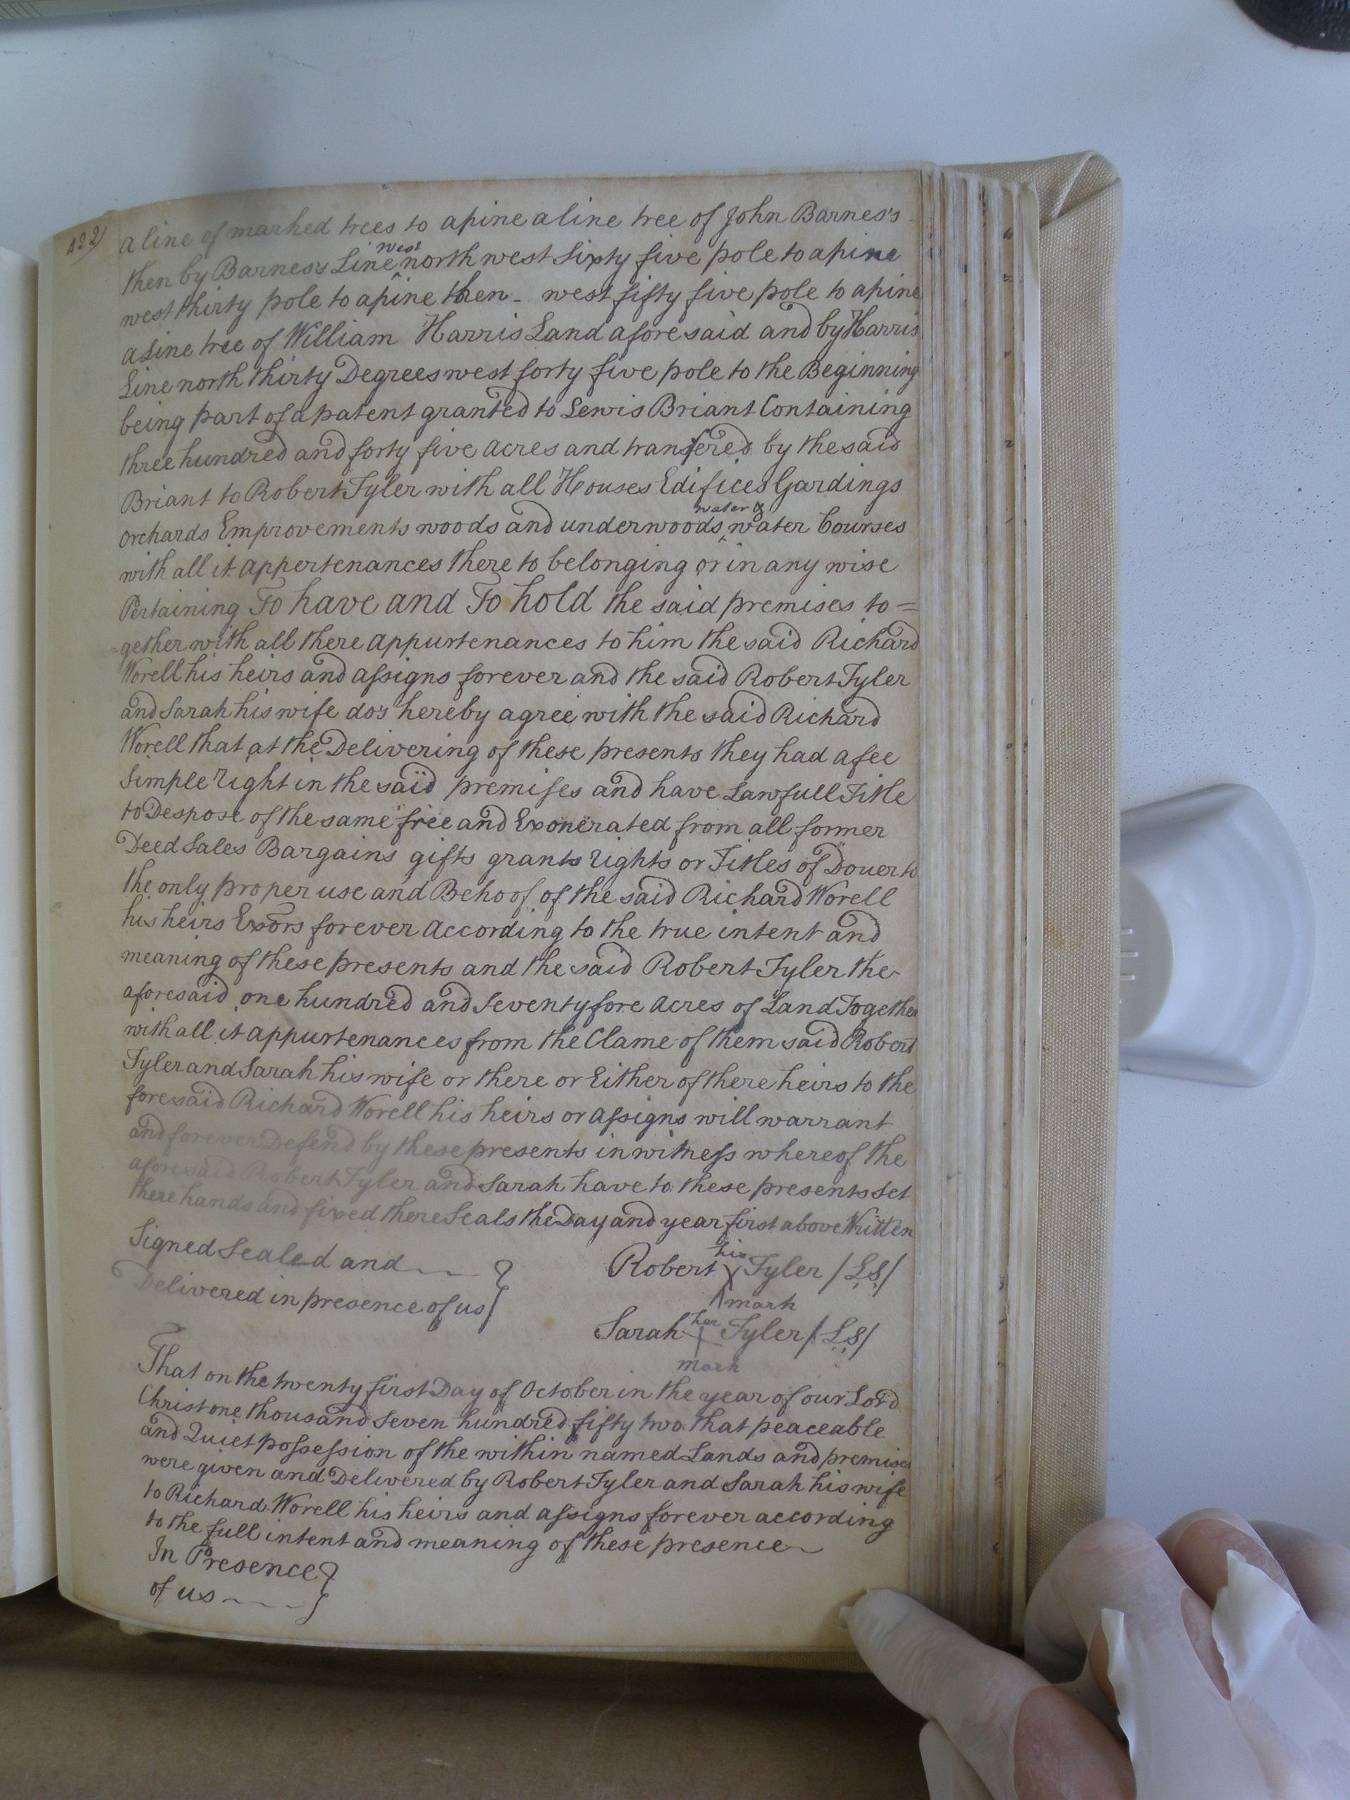 422)
a line of marked trees to a pine a line tree of John Barnes's
west
then by Barness Line north west Sixty five pole to a pine
west thirty pole to a pine then - west fifty five pole to a pine
a Line tree of William Harris Land afore said and by Harris
Line north thirty Degrees west forty five pole to the Beginning
being part of a patent granted to Lewis Briant Containing
three hundred and forty five acres and transfered by the said
Briant to Robert Tyler with all Houses Edifices Gardings
water &
orchards Emprovements woods and underwoods, water Courses
with all it appertenances there to belonging or in any wise
Pertaining To have and To hold the said premises to =
=gether with all there appurtenances to him the said Richard
Worell his heirs and assigns forever and the said Robert Tyler
and Sarah his wife dos hereby agree with the said Richard
Worell that at the Delivering of these presents they had a fee
Simple right in the said premises and have Lawfull Title
to Despose of the same free and Exonerated from all former
Deed Sales Bargains gifts grants rights or Titles of Douer to
the only proper use and Behoof of the said Richard Worell
his heirs Exors forever according to the true intent and
meaning of these presents and the said Robert Tyler the
aforesaid one hundred and seventy fore acres of Land Together
with all it appurtenances from the Clame of them said Robert
Tyler and Sarah his wife or there or Either of there heirs to the
foresaid Richard Worell his heirs or assigns will warrant
and forever Defend by these presents in witness whereof the
aforesaid Robert Tyler and Sarah have to these presents Set
there hands and fixed there Seals the Day and year first above Written
Signed Sealed and
Delivered in presence of us
his
Robert X Tyler /L,S,/
mark
her
Sarah + Tyler /L,S,/
mark
That on the twenty first Day of October in the year of our Lord
Christ one thousand seven hundred fifty two that peaceable
and Quiet possession of the within named Lands and premises
were given and Delivered by Robert Tyler and Sarah his wife
to Richard Worell his heirs and assigns forever according
to the full intent and meaning of these presence
In Presence
of us